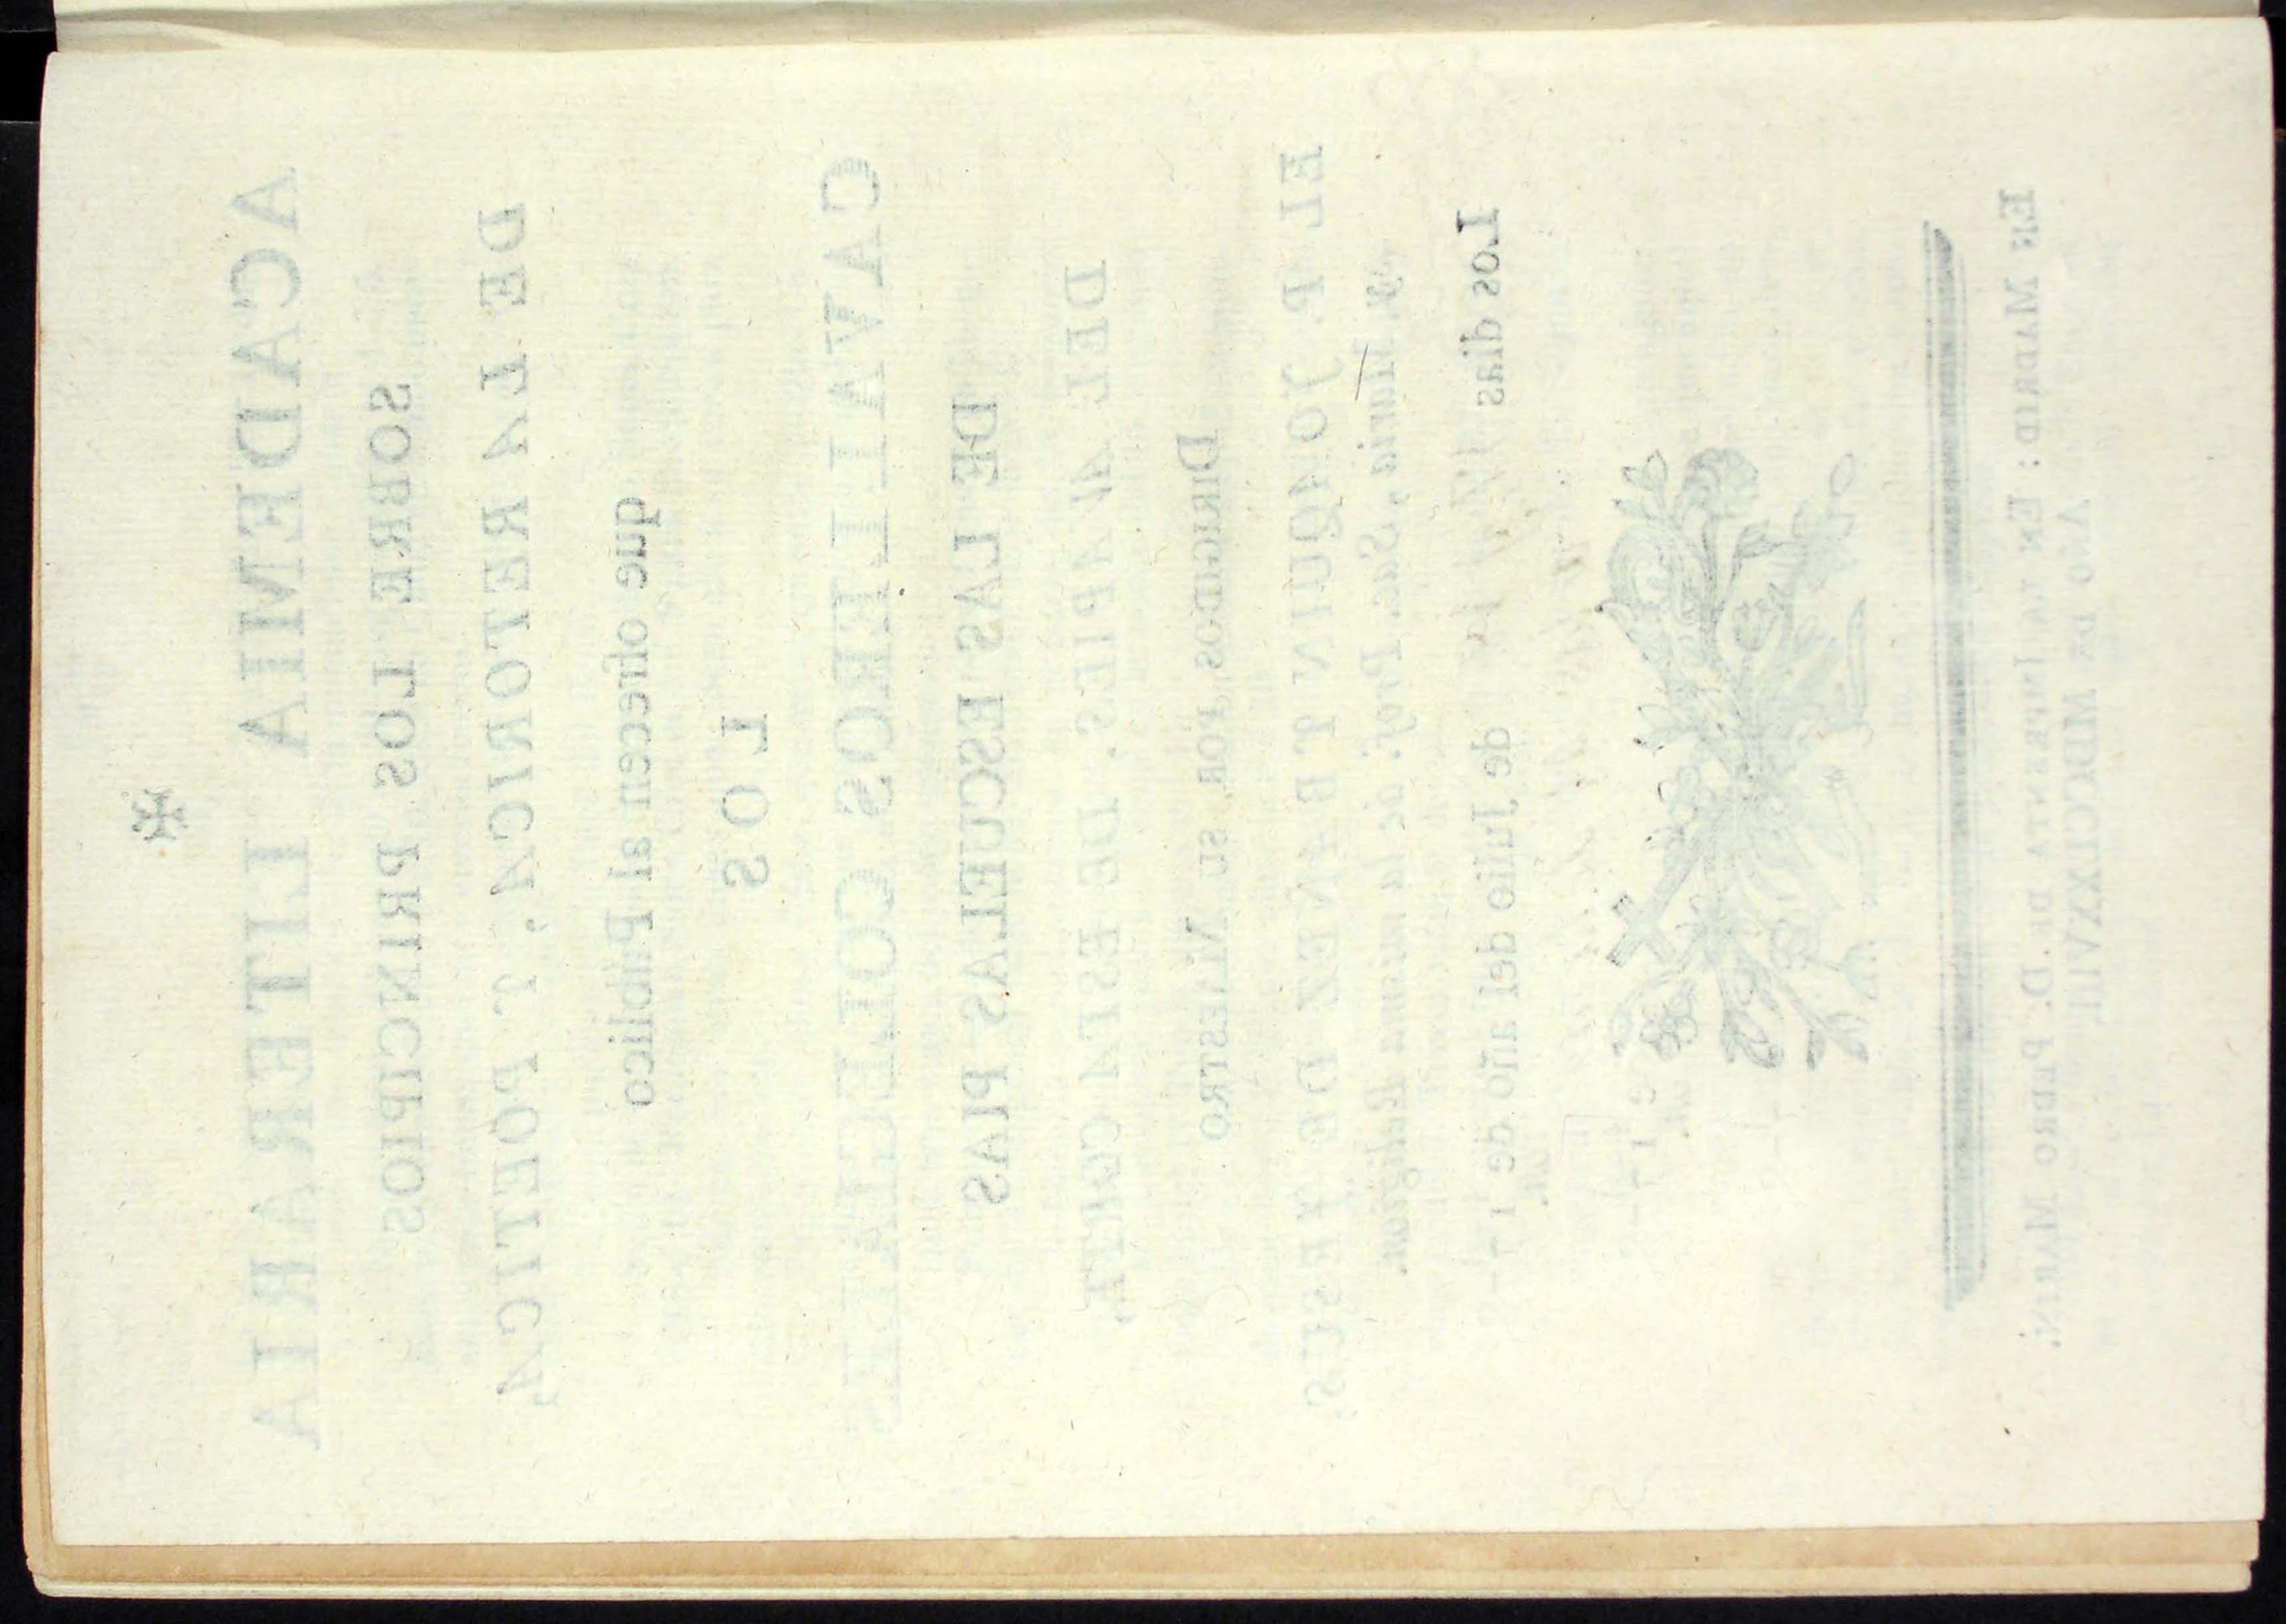 ACADEMIA LITERARIA
SOBRE LOS PRINCIPIOS
DE LA RETORICA, Y POETICA,
que ofrecen al Publico
LOS
CAVALLEROS COLEGIALES
DE LAS ESCUELAS PIAS
DEL AVAPIES, DE ESTA CORTE,
DIRIGIDOS POR SU MAESTRO
EL P. JOAQUIN YBAÑEZ DE JESUS,
y Maria, Sac. Prof. de la misma Religion.
Los dias de Julio del año de 17
EN MADRID: EN LA IMPRENTA DE D. PEDRO MARIN.
AÑO DE MDCCLXXVIII.